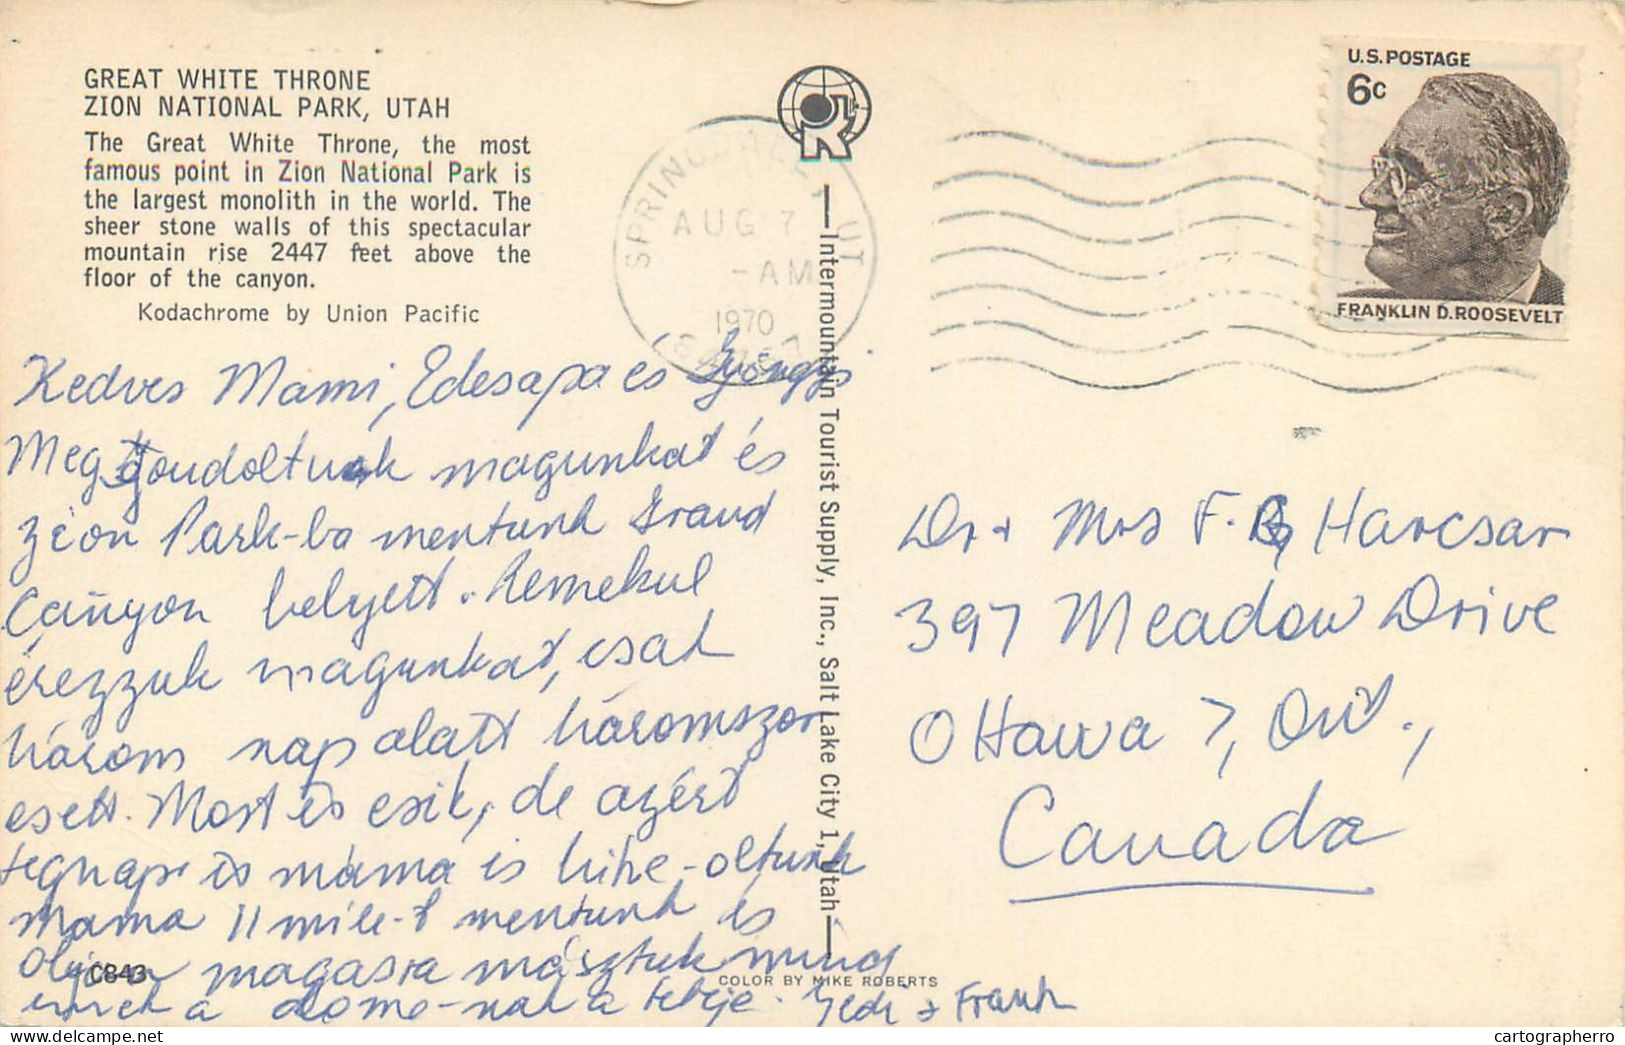 GREAT WHITE THRONE
ZION NATIONAL PARK, UTAH
The Great White Throne, the most
famous point in Zion National Park is
the largest monolith in the world. The
sheer stone walls of this spectacular
mountain rise 2447 feet above the
floor of the canyon.
Kodachrome by Union Pacific
Kedves Mami, Edesapa és Gyöngyi
Meggondoltuk magunkat és
Zion Park-ba mentunk Grand
Canyon helyett. Remekul
érezzuk magunkat, csak
három nap alatt háromszor
esett. Most is esik, de azért
tegnap is máma is hike-oltunk
mama 11 mile-t mentunk és
olyan magasra másztuk mind
a dome-nak a teteje. Gedi + Frank
C843
SPRINGDALE, UT
AUG 7
-AM
1970
84767
Intermountain Tourist Supply, Inc., Salt Lake City 1, Utah
COLOR BY MIKE ROBERTS
U.S. POSTAGE
6c
FRANKLIN D. ROOSEVELT
Dr + Mrs F. G. Harcsar
397 Meadow Drive
Ottawa 7, Ont.,
Canada
cartographerro